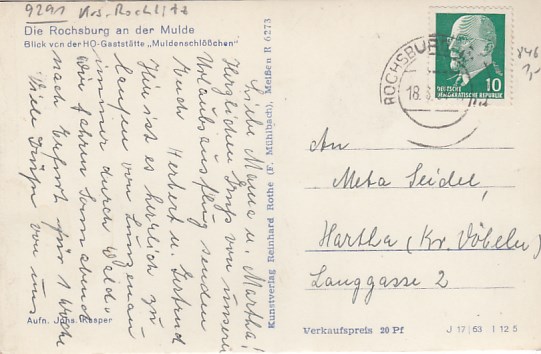 9291 Krs. Rochlitz
Die Rochsburg an der Mulde
Blick von der HO-Gaststätte „Muldenschlößchen“
Liebe Mama u. Martha!
Herzlichen Gruß von unserm
Urlaubsausflug senden
Euch Herbert u. Gertrud
Hier ist es herrlich zu
laufen von Lunzenau
immer durch Wald.
Wir fahren Sonnabend
nach Erfurt für 1 Woche
Viele Grüße von uns
Aufn. Johs. Kasper
Kunstverlag Reinhard Rothe (F. Mühlbach), Meißen R 6273
ROCHSBURG
18.
10
DEUTSCHE
DEMOKRATISCHE REPUBLIK
846
An
Meta Seidel,
Hartha (Kr. Döbeln)
Langgasse 2
Verkaufspreis 20 Pf
J 17 | 63 I 12 5